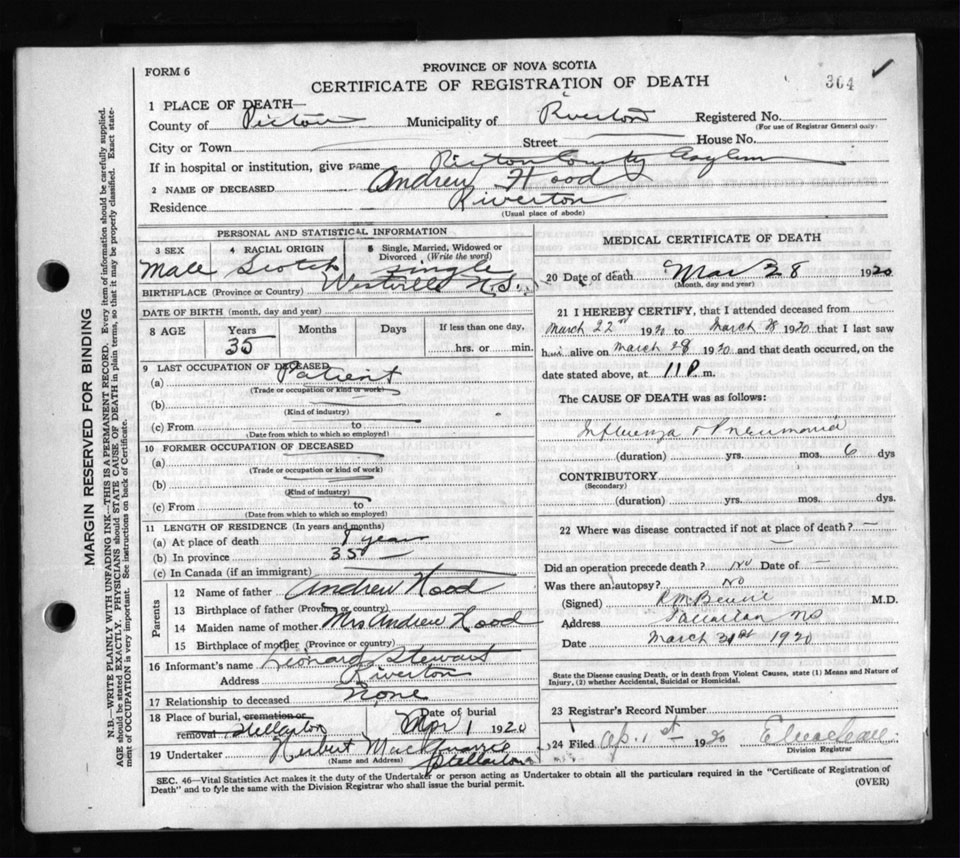 FORM 6
PROVINCE OF NOVA SCOTIA
CERTIFICATE OF REGISTRATION OF DEATH
304 ✓
1 PLACE OF DEATH—
County of Pictou Municipality of Riverton Registered No.
(For use of Registrar General only)
City or Town Street House No.
If in hospital or institution, give name Pictou County Asylum
2 NAME OF DECEASED Andrew Hood
Residence Riverton
(Usual place of abode)
PERSONAL AND STATISTICAL INFORMATION
3 SEX 4 RACIAL ORIGIN 5 Single, Married, Widowed or Divorced (Write the word)
Male Scotch Single
BIRTHPLACE (Province or Country) Westville N.S.
DATE OF BIRTH (month, day and year)
8 AGE Years Months Days If less than one day,
35 hrs. or min.
9 LAST OCCUPATION OF DECEASED
(a) Patient
(Trade or occupation or kind of work)
(b)
(Kind of industry)
(c) From to
(Date from which to which so employed)
10 FORMER OCCUPATION OF DECEASED
(a)
(Trade or occupation or kind of work)
(b)
(Kind of industry)
(c) From to
(Date from which to which so employed)
11 LENGTH OF RESIDENCE (In years and months)
(a) At place of death 8 years
(b) In province 35
(c) In Canada (if an immigrant)
Parents
12 Name of father Andrew Hood
13 Birthplace of father (Province or country)
14 Maiden name of mother Mrs Andrew Hood
15 Birthplace of mother (Province or country)
16 Informant's name Leonard Stewart
Address Riverton
17 Relationship to deceased None
18 Place of burial, cremation or removal Stellarton Date of burial Apr 1 1920
19 Undertaker Herbert
(Name and Address) Stellarton
MEDICAL CERTIFICATE OF DEATH
20 Date of death Mar 28 1920
(Month, day and year)
21 I HEREBY CERTIFY, that I attended deceased from
March 22nd 1920 to March 28 1920 that I last saw
him alive on March 28 1920 and that death occurred, on the
date stated above, at 11 P. m.
The CAUSE OF DEATH was as follows:
Influenza & Pneumonia
(duration) yrs. mos. 6 dys
CONTRIBUTORY
(Secondary)
(duration) yrs. mos. dys.
22 Where was disease contracted if not at place of death? —
Did an operation precede death? No Date of —
Was there an autopsy? No
(Signed) M.D.
Address
Date March 31st 1920
State the Disease causing Death, or in death from Violent Causes, state (1) Means and Nature of
Injury, (2) whether Accidental, Suicidal or Homicidal.
23 Registrar's Record Number
24 Filed Ap. 1st 1920
Division Registrar
SEC. 46—Vital Statistics Act makes it the duty of the Undertaker or person acting as Undertaker to obtain all the particulars required in the "Certificate of Registration of
Death" and to fyle the same with the Division Registrar who shall issue the burial permit.
(OVER)
MARGIN RESERVED FOR BINDING
N.B.—WRITE PLAINLY WITH UNFADING INK—THIS IS A PERMANENT RECORD. Every item of information should be carefully supplied.
AGE should be stated EXACTLY. PHYSICIANS should STATE CAUSE OF DEATH in plain terms, so that it may be properly classified. Exact state-
ment of OCCUPATION is very important. See instructions on back of Certificate.